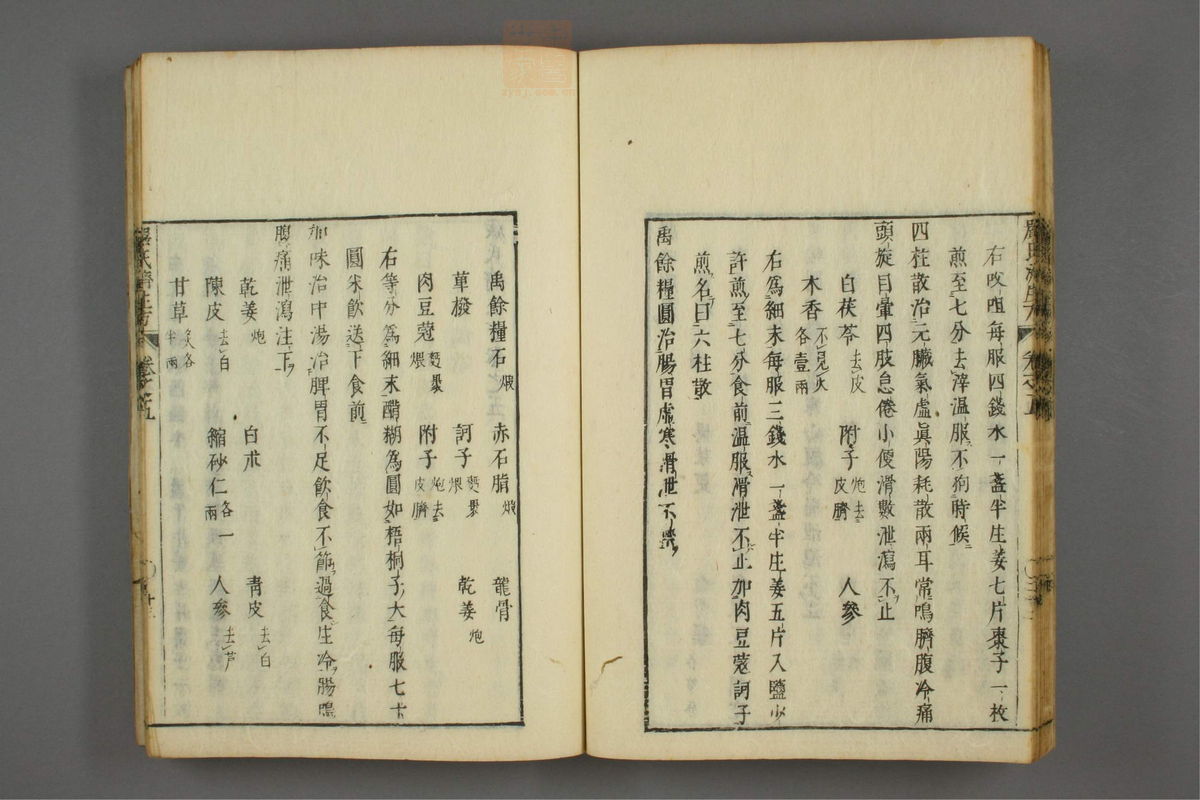 右㕮咀每服四錢水一盞半生姜七片棗子一枚
煎至七分去滓温服不狥時候
四柱散治元臟氣虛眞陽耗散兩耳常鳴臍腹冷痛
頭旋目暈四肢怠倦小便滑數泄瀉不止
白茯苓去皮 附子炮去皮臍 人參
木香不見火各壹兩
右爲細末每服三錢水一盞半生姜五片入鹽少
許煎至七分食前温服滑泄不止加肉豆蔻訶子
煎名曰六柱散
禹餘糧圓治腸胃虛寒滑泄不禁
禹餘糧石煅 赤石脂煅 龍骨
蓽撥 訶子麪褁煨 乾姜炮
肉豆蔻麪褁煨 附子炮去皮臍
右等分爲細末醋糊爲圓如梧桐子大每服七十
圓米飲送下食前
加味治中湯治脾胃不足飲食不節過食生冷腸鳴
腹痛泄瀉注下
乾姜炮 白朮 青皮去白
陳皮去白 縮砂仁各一兩 人參去芦
甘草炙各半兩
嚴氏濟生方 卷之五